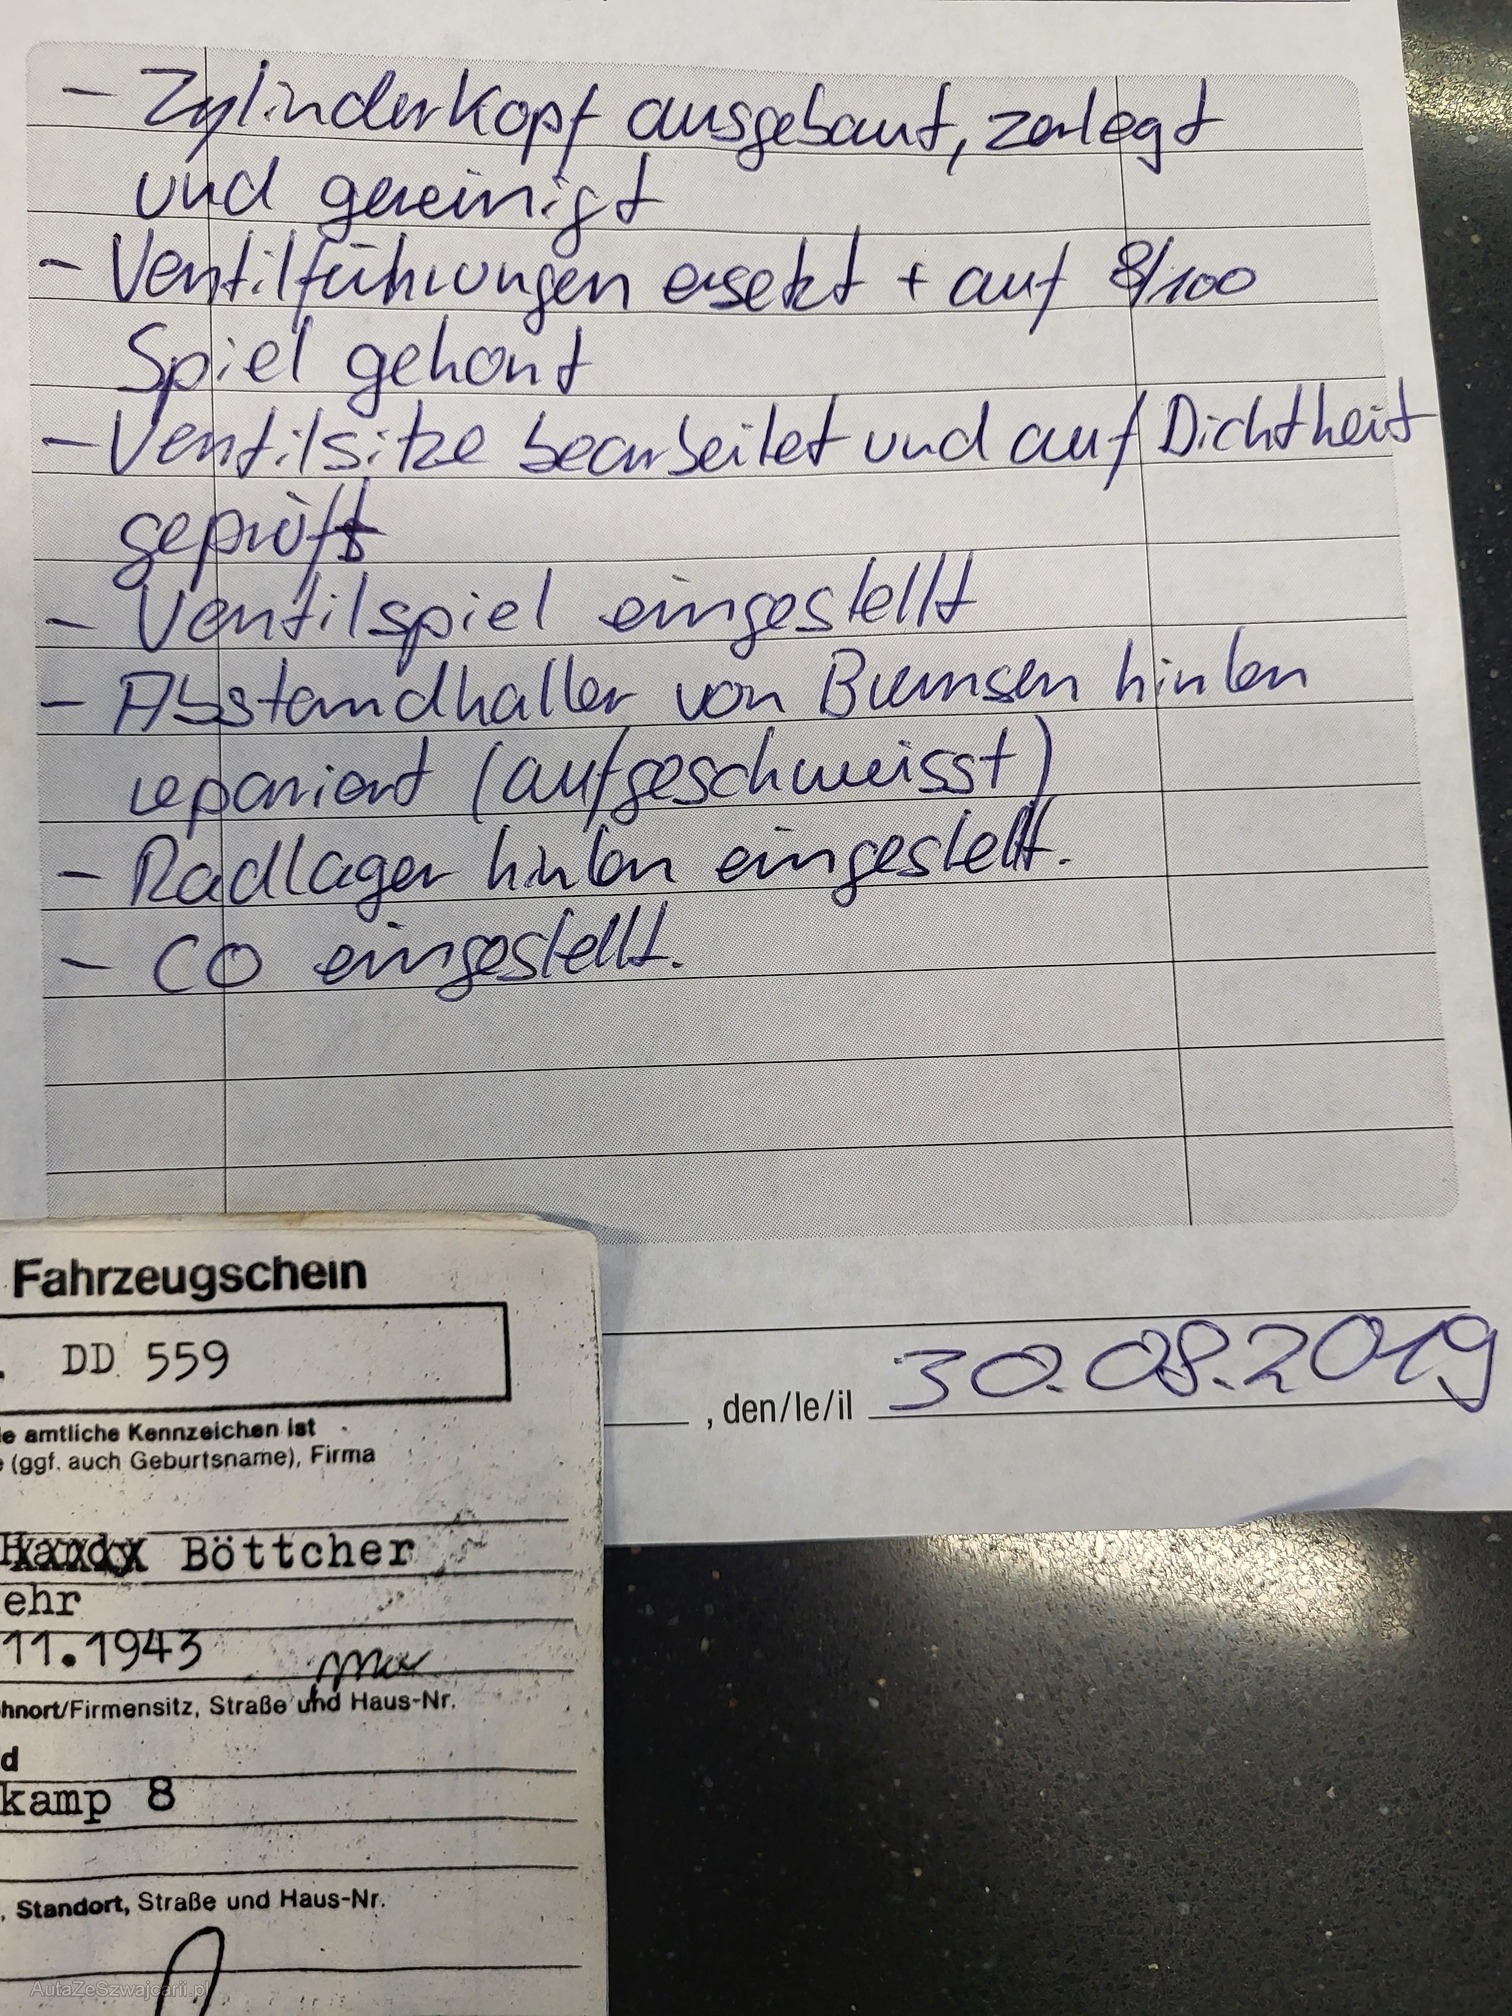 - Zylinderkopf ausgebaut, zerlegt
und gereinigt
- Ventilführungen ersetzt + auf 8/100
Spiel gehont
- Ventilsitze bearbeitet und auf Dichtheit
geprüft
- Ventilspiel eingestellt
- Abstandhalter von Bremsen hinten
repariert (aufgeschweisst)
- Radlager hinten eingestellt.
- CO eingestellt.
, den/le/il 30.08.2019
Fahrzeugschein
. DD 559
e amtliche Kennzeichen ist
(ggf. auch Geburtsname), Firma
Böttcher
ehr
11.1943
hnort/Firmensitz, Straße und Haus-Nr.
d
kamp 8
, Standort, Straße und Haus-Nr.
AutaZeSzwajcarii.pl